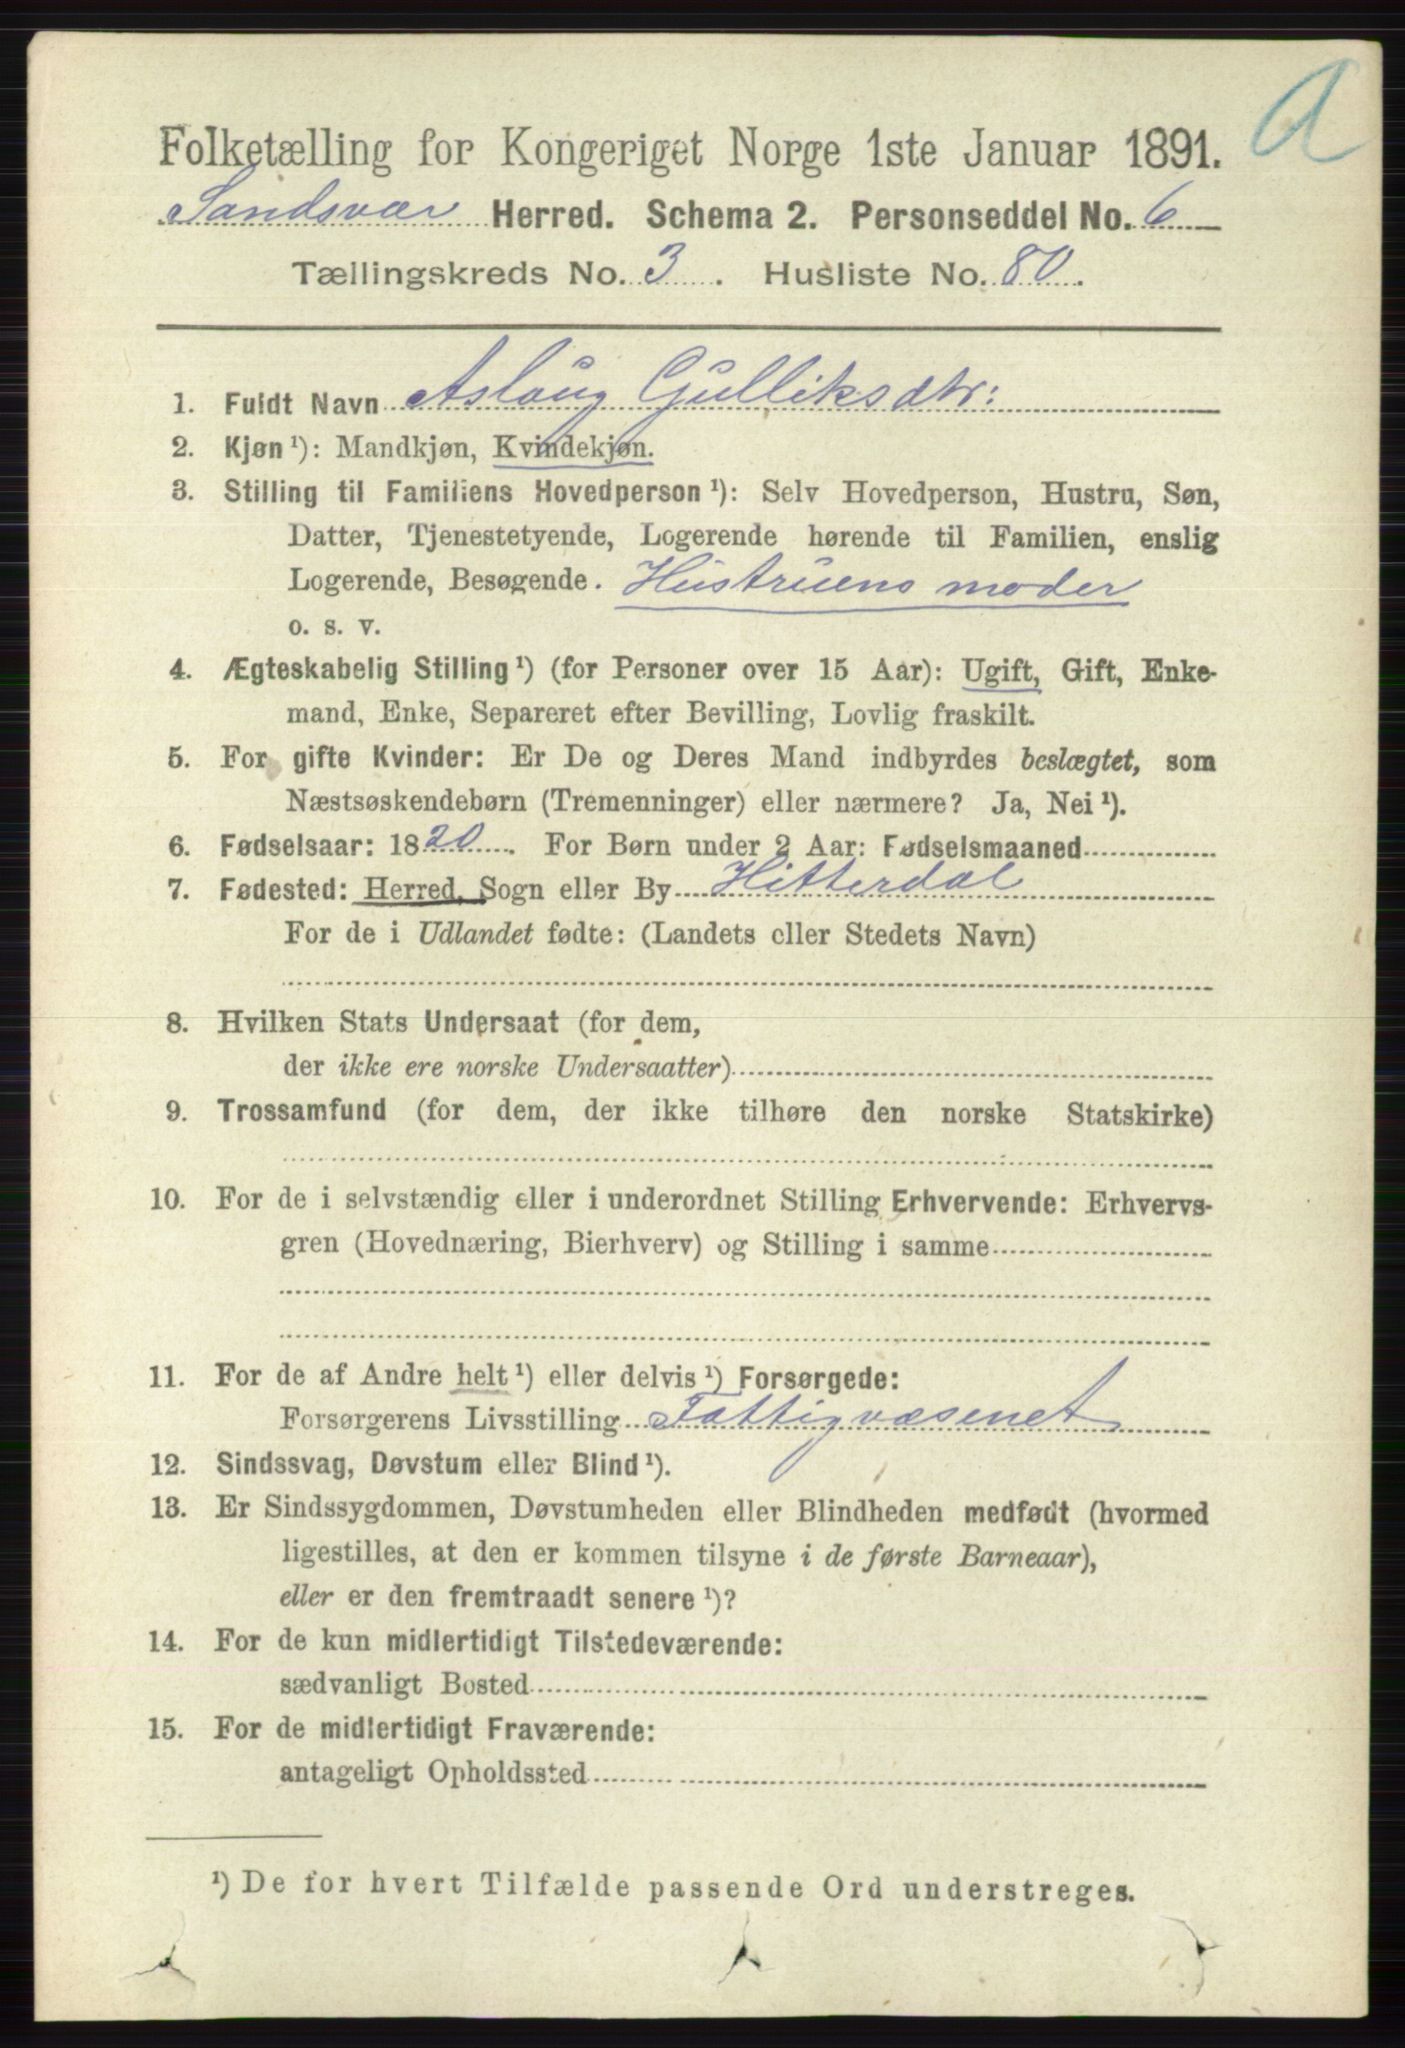 A
Folketælling for Kongeriget Norge 1ste Januar 1891.
Sandsvær Herred. Schema 2. Personseddel No. 6
Tællingskreds No. 3. Husliste No. 80.
1. Fuldt Navn Aslaug Gulliksdtr:
2. Kjøn¹): Mandkjøn, Kvindekjøn.
3. Stilling til Familiens Hovedperson¹): Selv Hovedperson, Hustru, Søn,
Datter, Tjenestetyende, Logerende hørende til Familien, enslig
Logerende, Besøgende. Hustruens moder
o. s. v.
4. Ægteskabelig Stilling¹) (for Personer over 15 Aar): Ugift, Gift, Enke-
mand, Enke, Separeret efter Bevilling, Lovlig fraskilt.
5. For gifte Kvinder: Er De og Deres Mand indbyrdes beslægtet, som
Næstsøskendebørn (Tremenninger) eller nærmere? Ja, Nei¹).
6. Fødselsaar: 1820. For Børn under 2 Aar: Fødselsmaaned
7. Fødested: Herred, Sogn eller By Hitterdal
For de i Udlandet fødte: (Landets eller Stedets Navn)
8. Hvilken Stats Undersaat (for dem,
der ikke ere norske Undersaatter)
9. Trossamfund (for dem, der ikke tilhøre den norske Statskirke)
10. For de i selvstændig eller i underordnet Stilling Erhvervende: Erhvervs-
gren (Hovednæring, Bierhverv) og Stilling i samme
11. For de af Andre helt¹) eller delvis¹) Forsørgede:
Forsørgerens Livsstilling Fattigvæsenet
12. Sindssvag, Døvstum eller Blind¹).
13. Er Sindssygdommen, Døvstumheden eller Blindheden medfødt (hvormed
ligestilles, at den er kommen tilsyne i de første Barneaar),
eller er den fremtraadt senere¹)?
14. For de kun midlertidigt Tilstedeværende:
sædvanligt Bosted
15. For de midlertidigt Fraværende:
antageligt Opholdssted
¹) De for hvert Tilfælde passende Ord understreges.